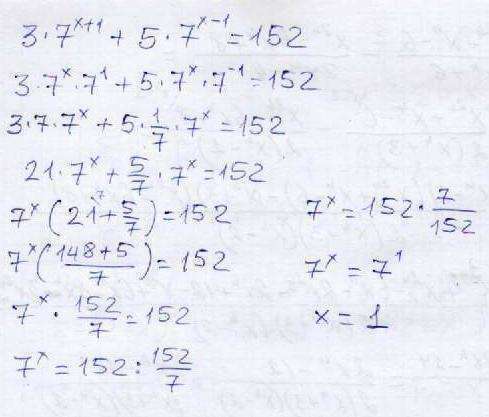 3·7^(x+1) + 5·7^(x-1) = 152
3·7^x·7^1 + 5·7^x·7^(-1) = 152
3·7·7^x + 5·1/7·7^x = 152
21·7^x + 5/7·7^x = 152
7^x (21 + 5/7) = 152
7^x ((148+5)/7) = 152
7^x · 152/7 = 152
7^x = 152 : 152/7
7^x = 152 · 7/152
7^x = 7^1
x = 1